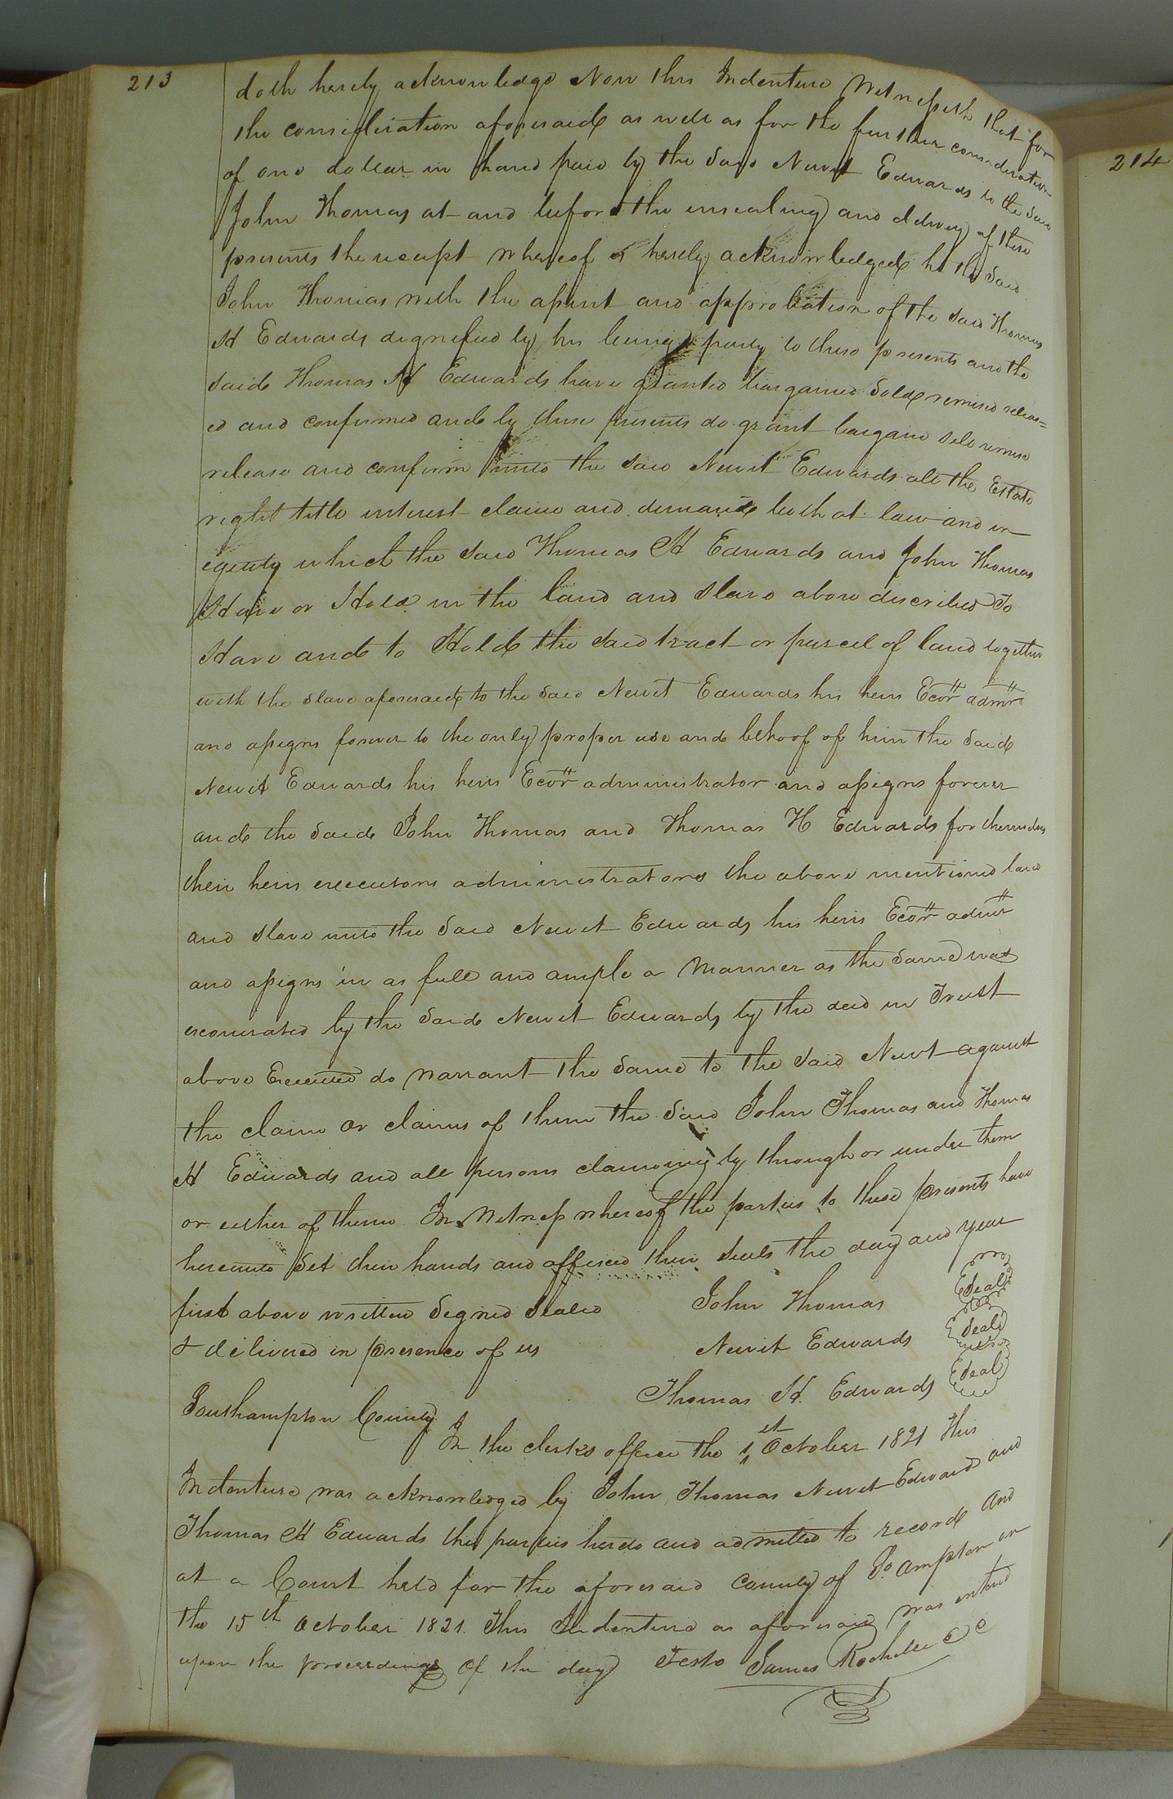 213
doth hereby acknowledge Now this Indenture Witnesseth that for
the consideration aforesaid as well as for the further consideration
of one dollar in hand paid by the said Newit Edwards to the said
John Thomas at and before the ensealing and delivery of these
presents the receipt whereof is hereby acknowledged he the said
John Thomas with the assent and approbation of the said Thomas
H Edwards signified by his being party to these presents and the
said Thomas H Edwards have granted bargained sold remised releas=
ed and confirmed and by these presents do grant bargain sell remise
release and confirm unto the said Newit Edwards all the Estate
right title interest claim and demand both at law and in
equity which the said Thomas H Edwards and John Thomas
Have or Hold in the land and slave above described To
Have and to Hold the said tract or parcel of land together
with the slave aforesaid to the said Newit Edwards his heirs Ecors admrs
and assigns forever to the only proper use and behoof of him the said
Newit Edwards his heirs Ecors administrator and assigns forever
and the said John Thomas and Thomas H Edwards for themselves
their heirs executors administrators the above mentioned land
and slave unto the said Newit Edwards his heirs Ecors admrs
and assigns in as full and ample a manner as the same was
by the said Newit Edwards by the deed in Trust
above do warrant the same to the said Newit against
the claim or claims of them the said John Thomas and Thomas
H Edwards and all persons claiming by through or under them
or either of them In Witness whereof the parties to these presents have
hereunto set their hands and affixed their seals the day and year
first above written Signed Sealed John Thomas Seal
& delivered in presence of us Newit Edwards Seal
Thomas H. Edwards Seal
Southampton County
In the clerks office the 1st October 1821 This
Indenture was acknowledged by John Thomas Newit Edwards and
Thomas H Edwards the parties hereto and admitted to record And
at a Court held for the aforesaid county of So ampton on
the 15th October 1821. This Indenture as aforesaid was entered
upon the proceedings Of the day Teste James Rochelle C C
214